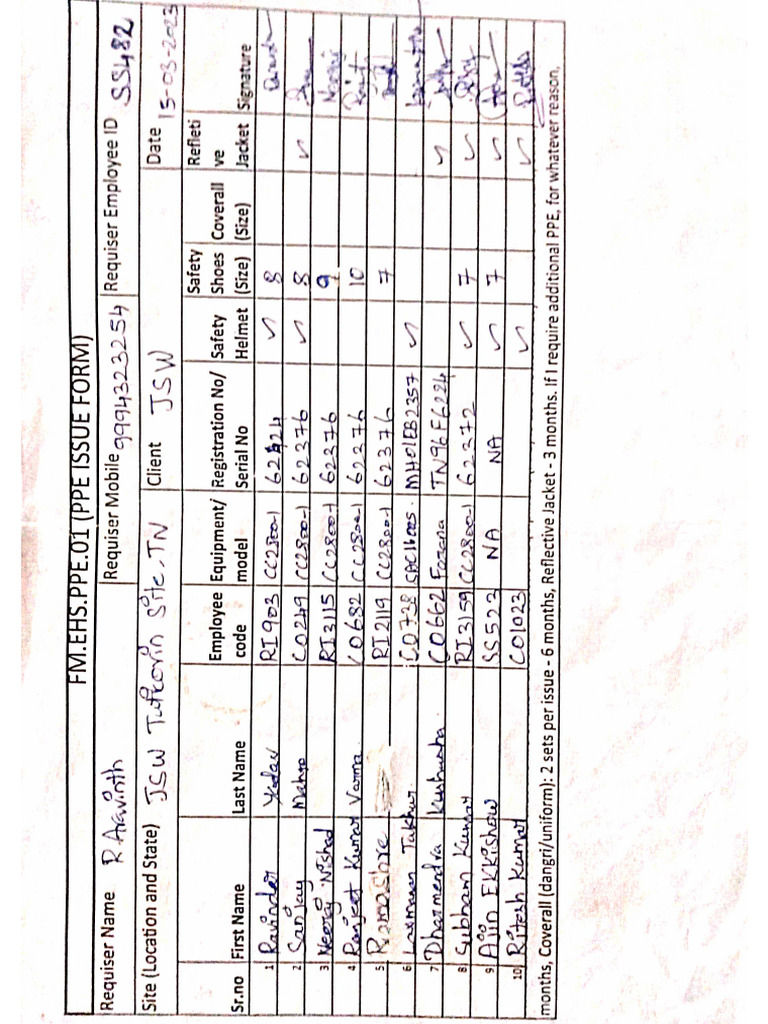 FM.EHS.PPE.01 (PPE ISSUE FORM)
Requiser Name R Aravinth Requiser Mobile 9994323254 Requiser Employee ID SS482
Site (Location and State) JSW Tutkorin Site, TN Client JSW Date 15-03-2023
Sr.no First Name Last Name Employee code Equipment/ model Registration No/ Serial No Safety Helmet Safety Shoes (Size) Coverall (Size) Refleti ve Jacket Signature
1 Ravinder Yadav RI903 CC2800-1 62424 ✓ 8
2 Sanjay Mahto C0249 CC2800-1 62376 ✓ 8 ✓
3 Neeraj Nishad RI3115 CC2800-1 62376 9
4 Ranjeet Kumar Varma C0682 CC2800-1 62376 10
5 Ramashre RI2119 CC2800-1 62376 7
6 Laxmanan Takhur C0738 MH01EB2357 ✓
7 Dharmendra Kushwaha C0662 Fozana TN96E6224 ✓
8 Subham Kumar RI3159 CC2800-1 62372 ✓ 7 ✓
9 Ajin Ekkishow SS523 NA NA ✓ 7 ✓
10 Ritesh Kumar C01023 ✓ ✓
months, Coverall (dangri/uniform): 2 sets per issue - 6 months, Reflective Jacket - 3 months. If I require additional PPE, for whatever reason,